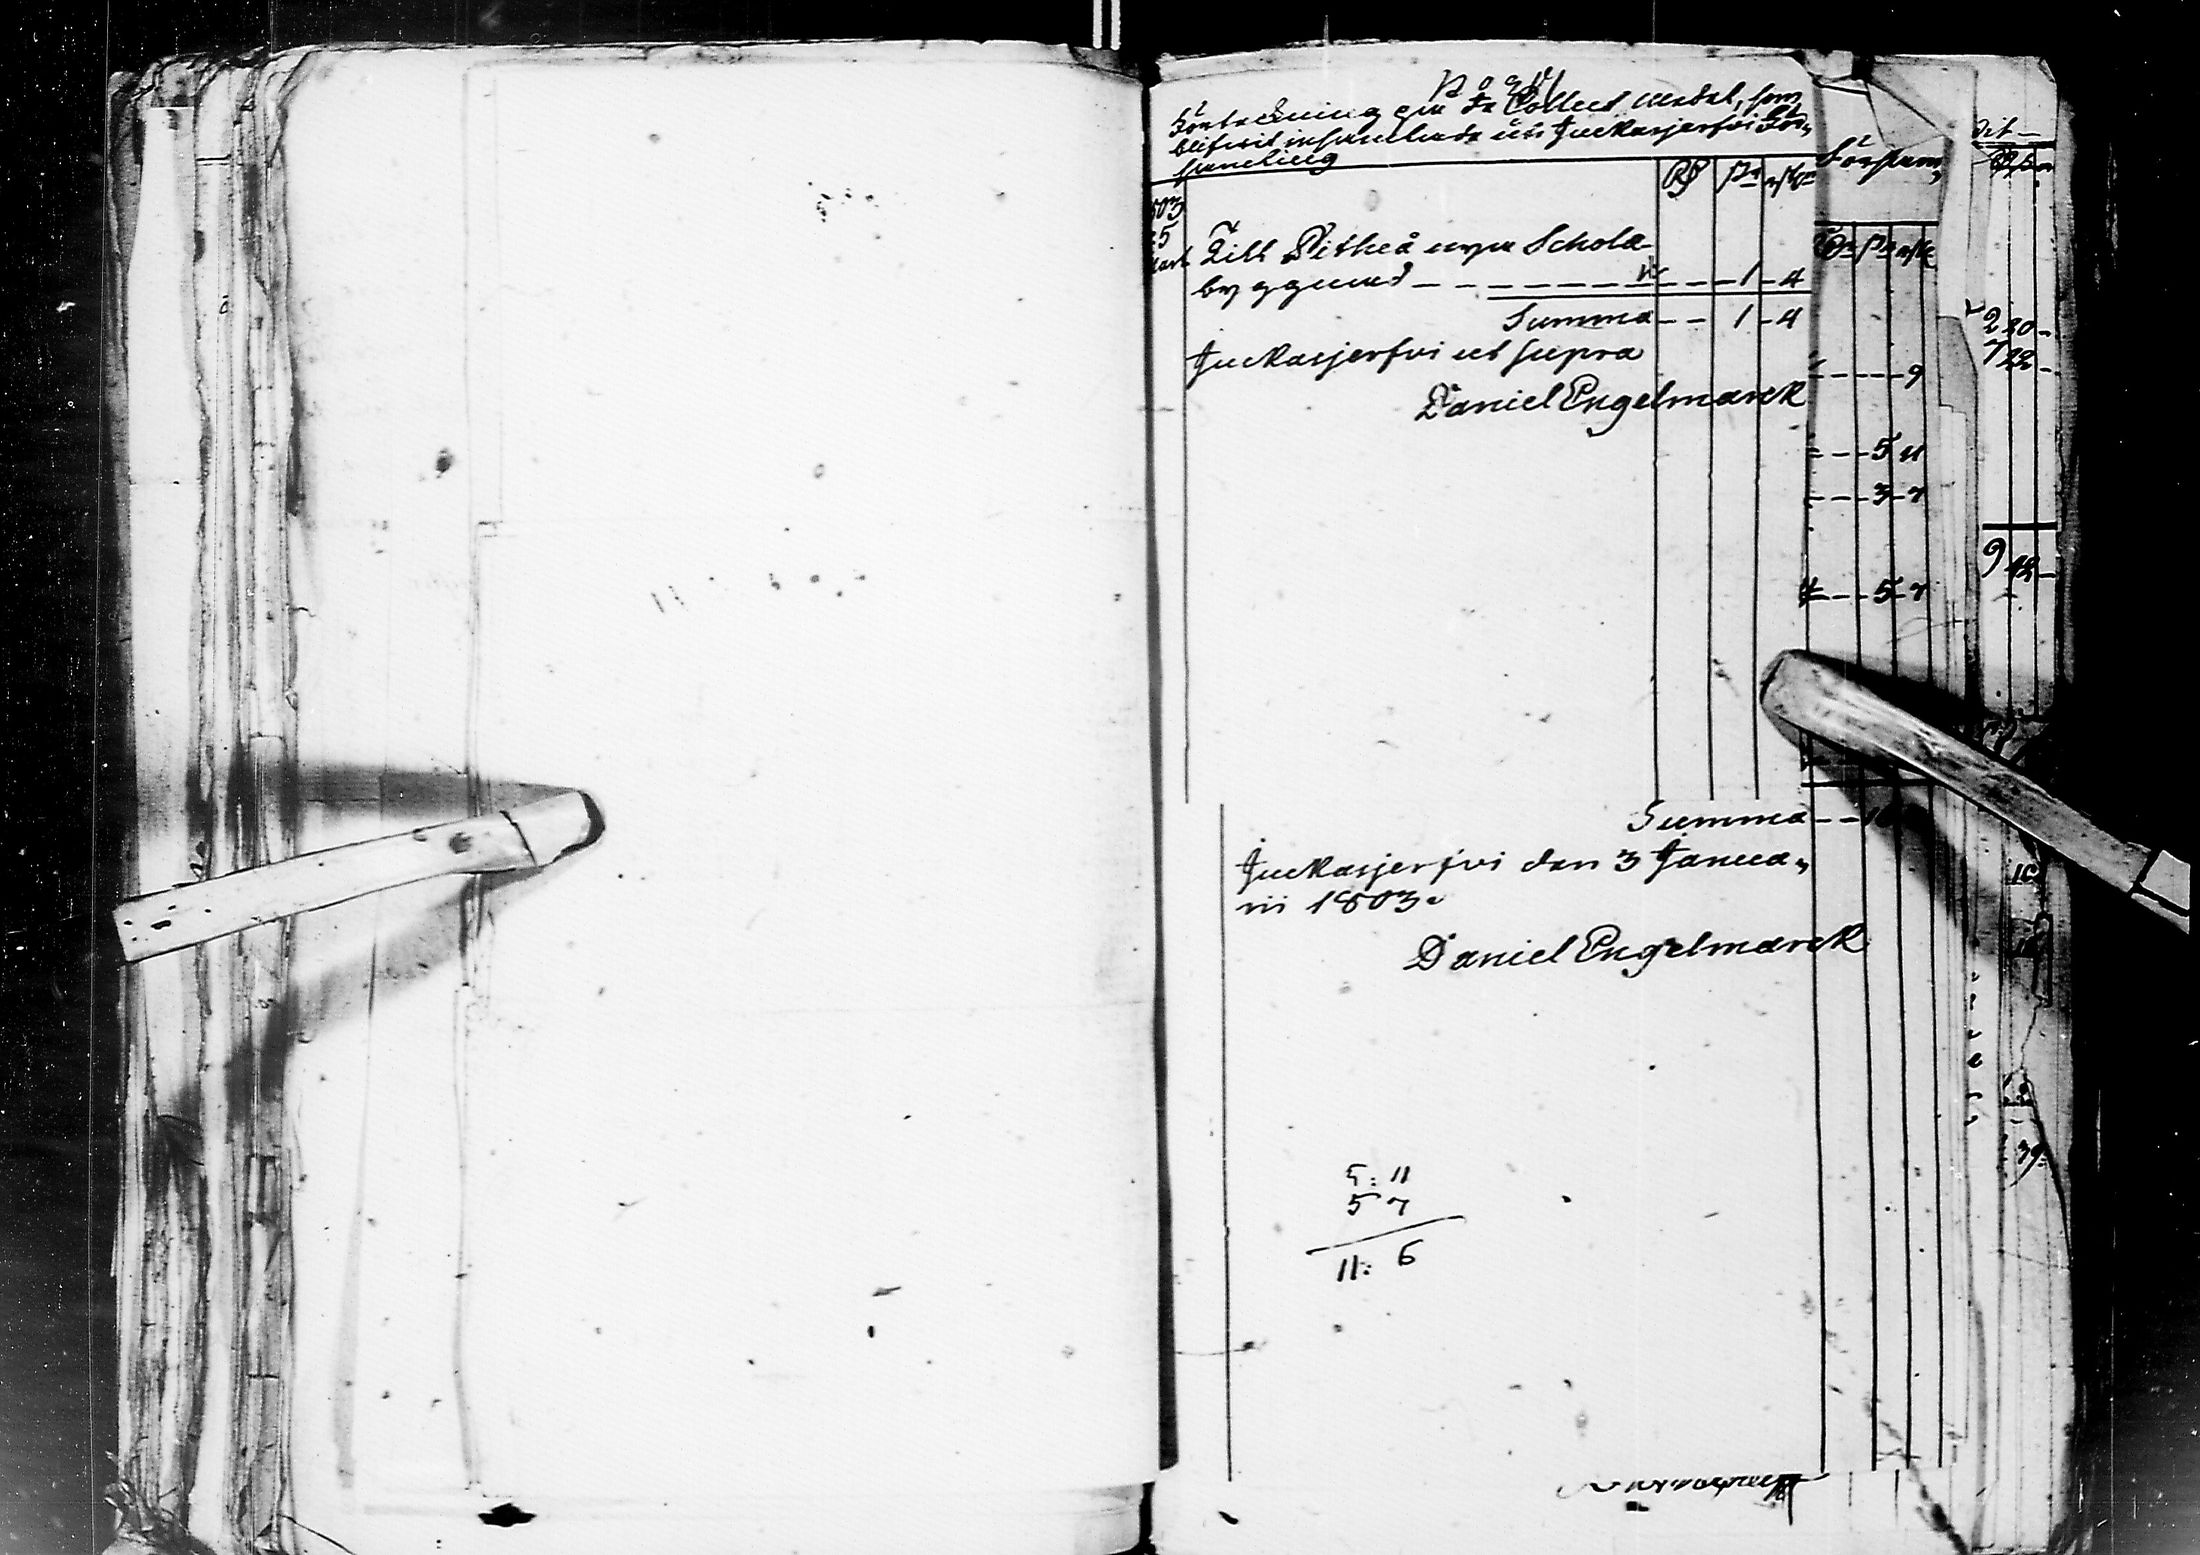 Förteckning på de Collect Medel, som
blifvit insamlade uti Juckasjerfvi För„
samling
Församl,
Rd sz rst
803
25
Till Pitheå nya Schola
byggnad – – – – – – – – – 1 – 4
Summa – – 1 – 4
Juckasjerfvi ut supra
Daniel Engelmarck
– – – – 9
– – 5 11
– – 3 – 7
– – 5 7
2 20 –
7 22 –
9 42 –
Summa – –
Juckasjerfvi den 3 Janua„
rii 1803.
Daniel Engelmarck
5: 11
5 7
11: 6
39